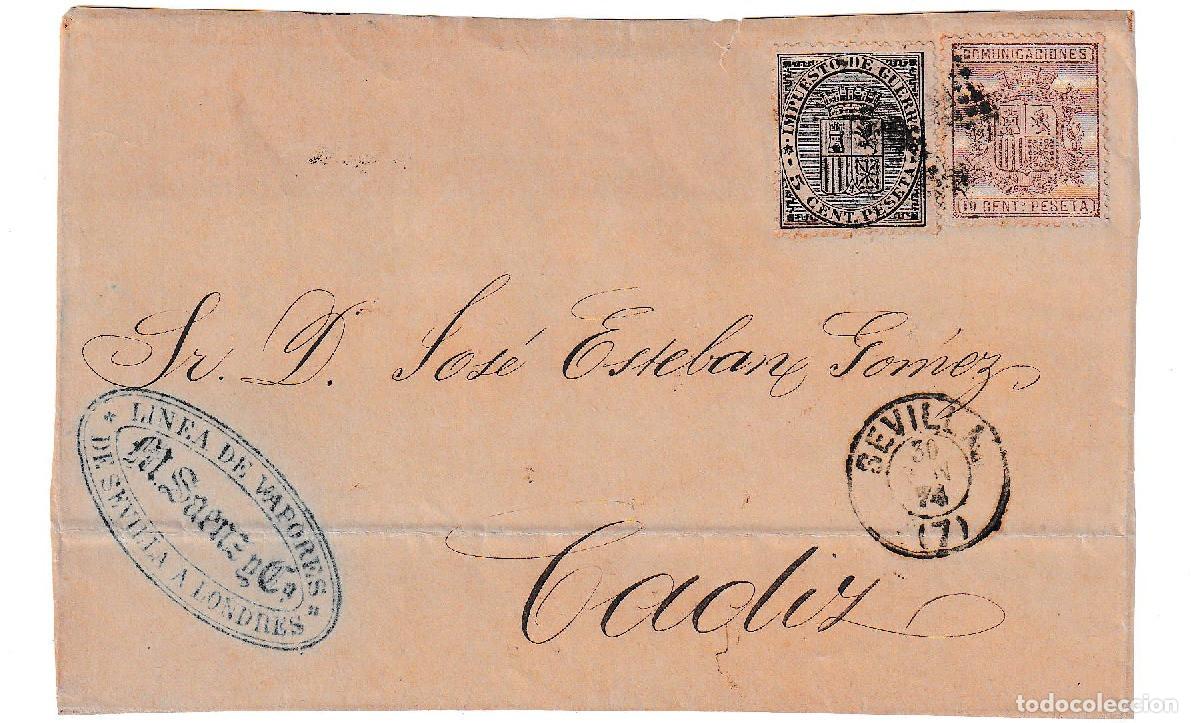 IMPUESTO DE GUERRA
5 CENT. PESETA
COMUNICACIONES
10 CENT. PESETA
Sr. D. José Esteban Gomez
LINEA DE VAPORES
M. Saenz y Ca
DE SEVILLA A LONDRES
SEVILLA
30
74
(7)
Cadiz
todocoleccion.net